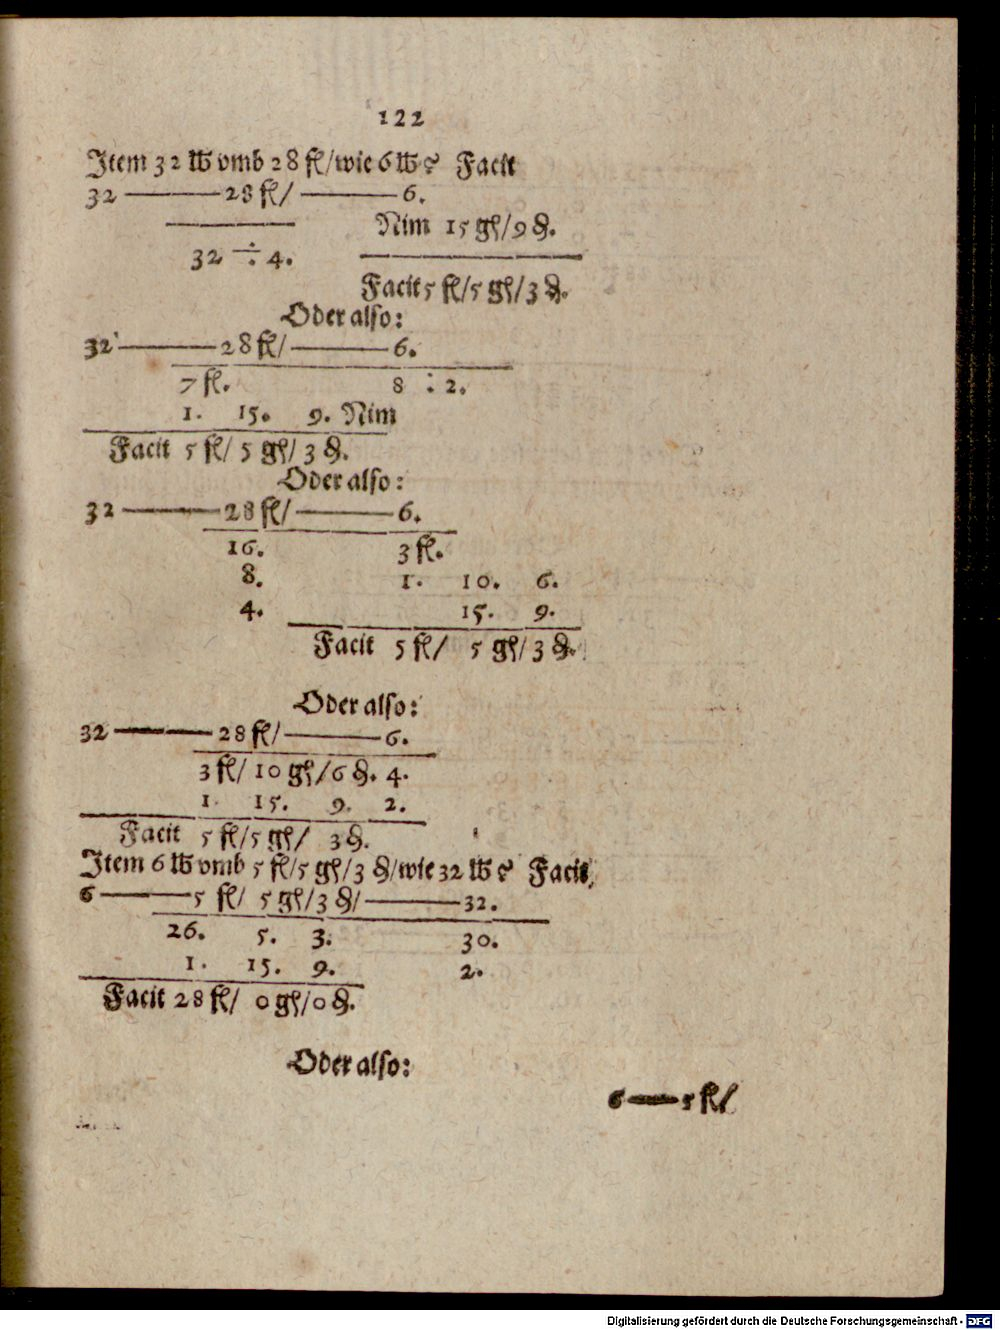 122
Item 32 ℔ vmb 28 fl/wie 6 ℔? Facit
32 ——— 28 fl/ ——— 6.
Nim 15 gl/9 ₰.
32 ÷ 4.
Facit 5 fl/5 gl/3 ₰.
Oder also:
32 ——— 28 fl/ ——— 6.
7 fl. 8 ÷ 2.
1. 15. 9. Nim
Facit 5 fl/ 5 gl/ 3 ₰.
Oder also:
32 ——— 28 fl/ ——— 6.
16. 3 fl.
8. 1. 10. 6.
4. 15. 9.
Facit 5 fl/ 5 gl/ 3 ₰.
Oder also:
32 ——— 28 fl/ ——— 6.
3 fl/ 10 gl/6 ₰. 4.
1. 15. 9. 2.
Facit 5 fl/5 gl/ 3 ₰.
Item 6 ℔ vmb 5 fl/5 gl/3 ₰/wie 32 ℔? Facit/
6 ——— 5 fl/ 5 gl/3 ₰/ ——— 32.
26. 5. 3. 30.
1. 15. 9. 2.
Facit 28 fl/ 0 gl/0 ₰.
Oder also:
6 — 5 fl/
Digitalisierung gefördert durch die Deutsche Forschungsgemeinschaft - DFG